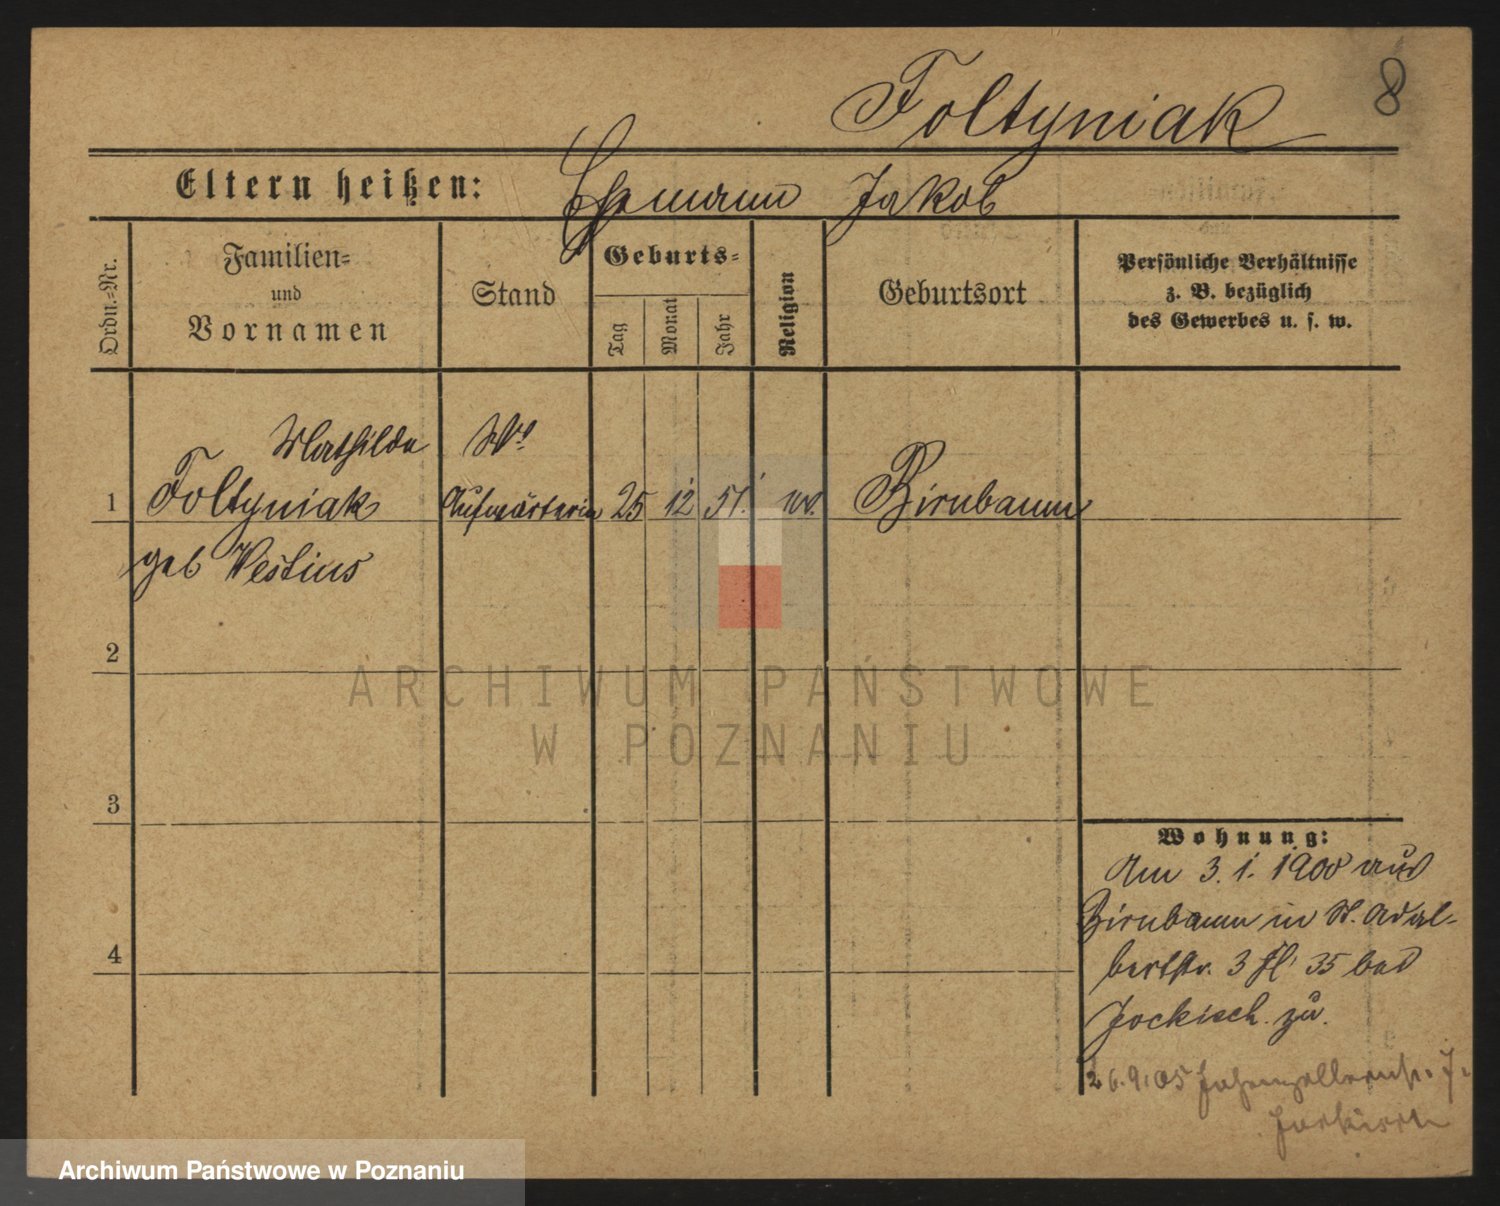 8
Foltyniak
Eltern heißen: Ehemann Jakob
Ordn.=Nr.
Familien=
und
Vornamen
Stand
Geburts=
Tag
Monat
Jahr
Religion
Geburtsort
Persönliche Verhältnisse
z. B. bezüglich
des Gewerbes u. s. w.
Mathilde
1 Foltyniak Aufwärterin 25 12 51. Birnbaum
geb Westius
2
3
4
Wohnung:
Am 3. 1. 1900 aus
Birnbaum in St. Adal-
bertstr. 3 35 bei
Jockisch. zu.
26.9.05 Hohenzollernstr. 7.
Jockisch
ARCHIWUM PAŃSTWOWE
W POZNANIU
Archiwum Państwowe w Poznaniu